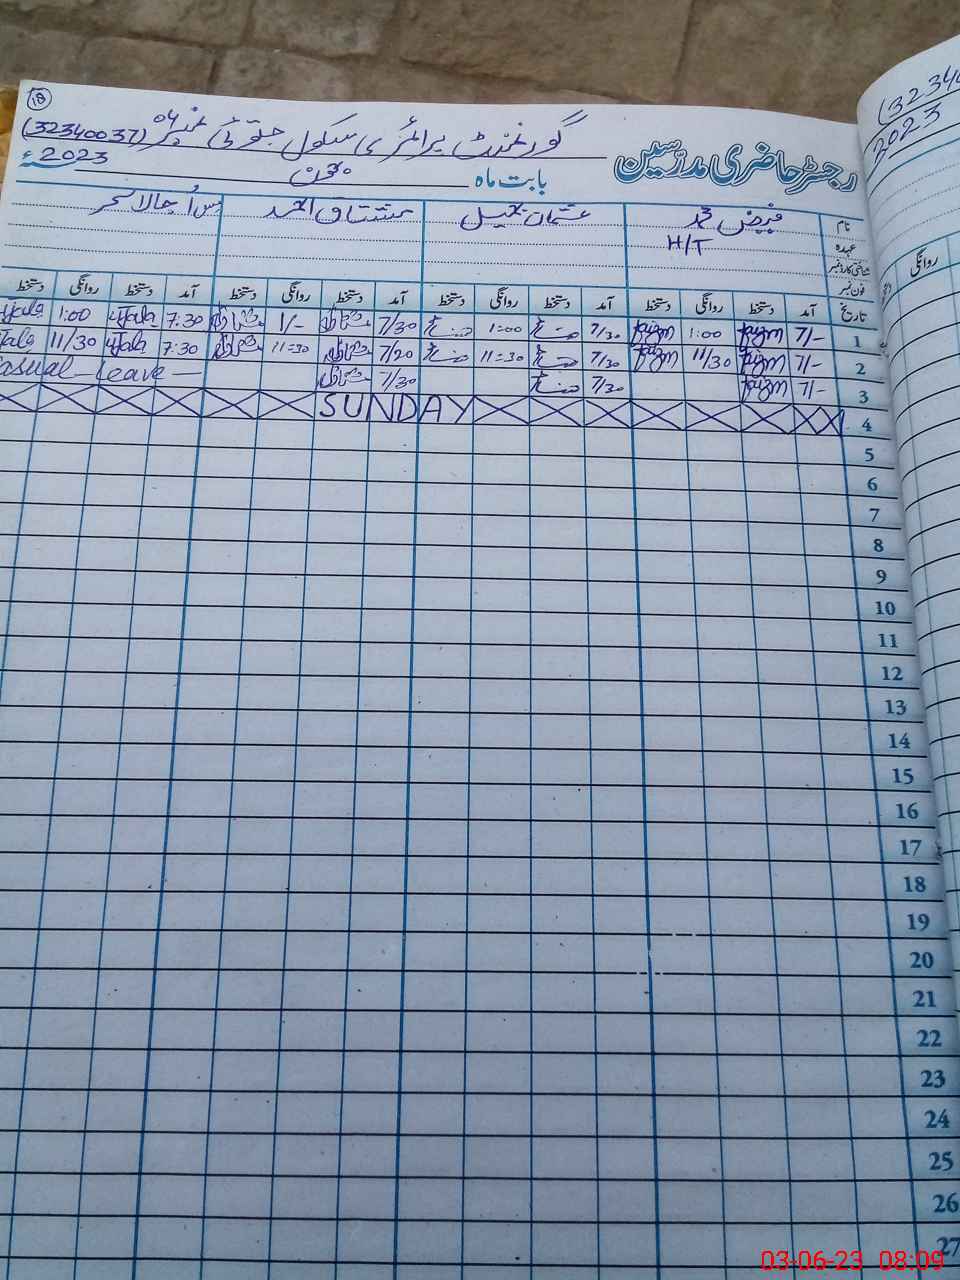 18
گورنمنٹ پرائمری سکول جتوئی نمبر 04 (32340037)
رجسٹر حاضری مدرسین
بابت ماہ جون 2023ء
نام فیض محمد عثمان جمیل مشتاق احمد مس اُجالا سحر
عہدہ H/T
شناختی کارڈ نمبر
فون نمبر
تاریخ آمد دستخط روانگی دستخط آمد دستخط روانگی دستخط آمد دستخط روانگی دستخط آمد دستخط روانگی دستخط
1 7/- faizm 1:00 faizm 7/30 1:00 7/30 مشتاق 1/- مشتاق 7:30 Ujala 1:00 Ujala
2 7/- faizm 11/30 faizm 7/30 11:30 7/20 مشتاق 11:30 مشتاق 7:30 Ujala 11/30 Ujala
3 7/- faizm 7/30 7/30 مشتاق Casual Leave
4 SUNDAY
5
6
7
8
9
10
11
12
13
14
15
16
17
18
19
20
21
22
23
24
25
26
27
(32340
2023
روانگی
03-06-23 08:09